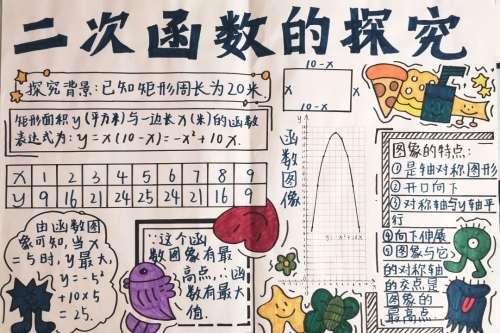 二次函数的探究
探究背景:已知矩形周长为20米.
矩形面积y(平方米)与一边长x(米)的函数
表达式为:y=x(10-x)=-x²+10x.
x 1 2 3 4 5 6 7 8 9
y 9 16 21 24 25 24 21 16 9
由函数图
象可知,当x
=5时,y最大,
y=-5²
+10×5
=25.
∵这个函
数图象有最
高点,∴函
数有最大
值.
10-x
x
x
10-x
函数图像
y=-x²+10x
图象的特点:
①是轴对称图形
②开口向下
③对称轴与y轴平
行
④向下伸展
⑤图象与它
的对称轴
的交点是
图象的
最高点.